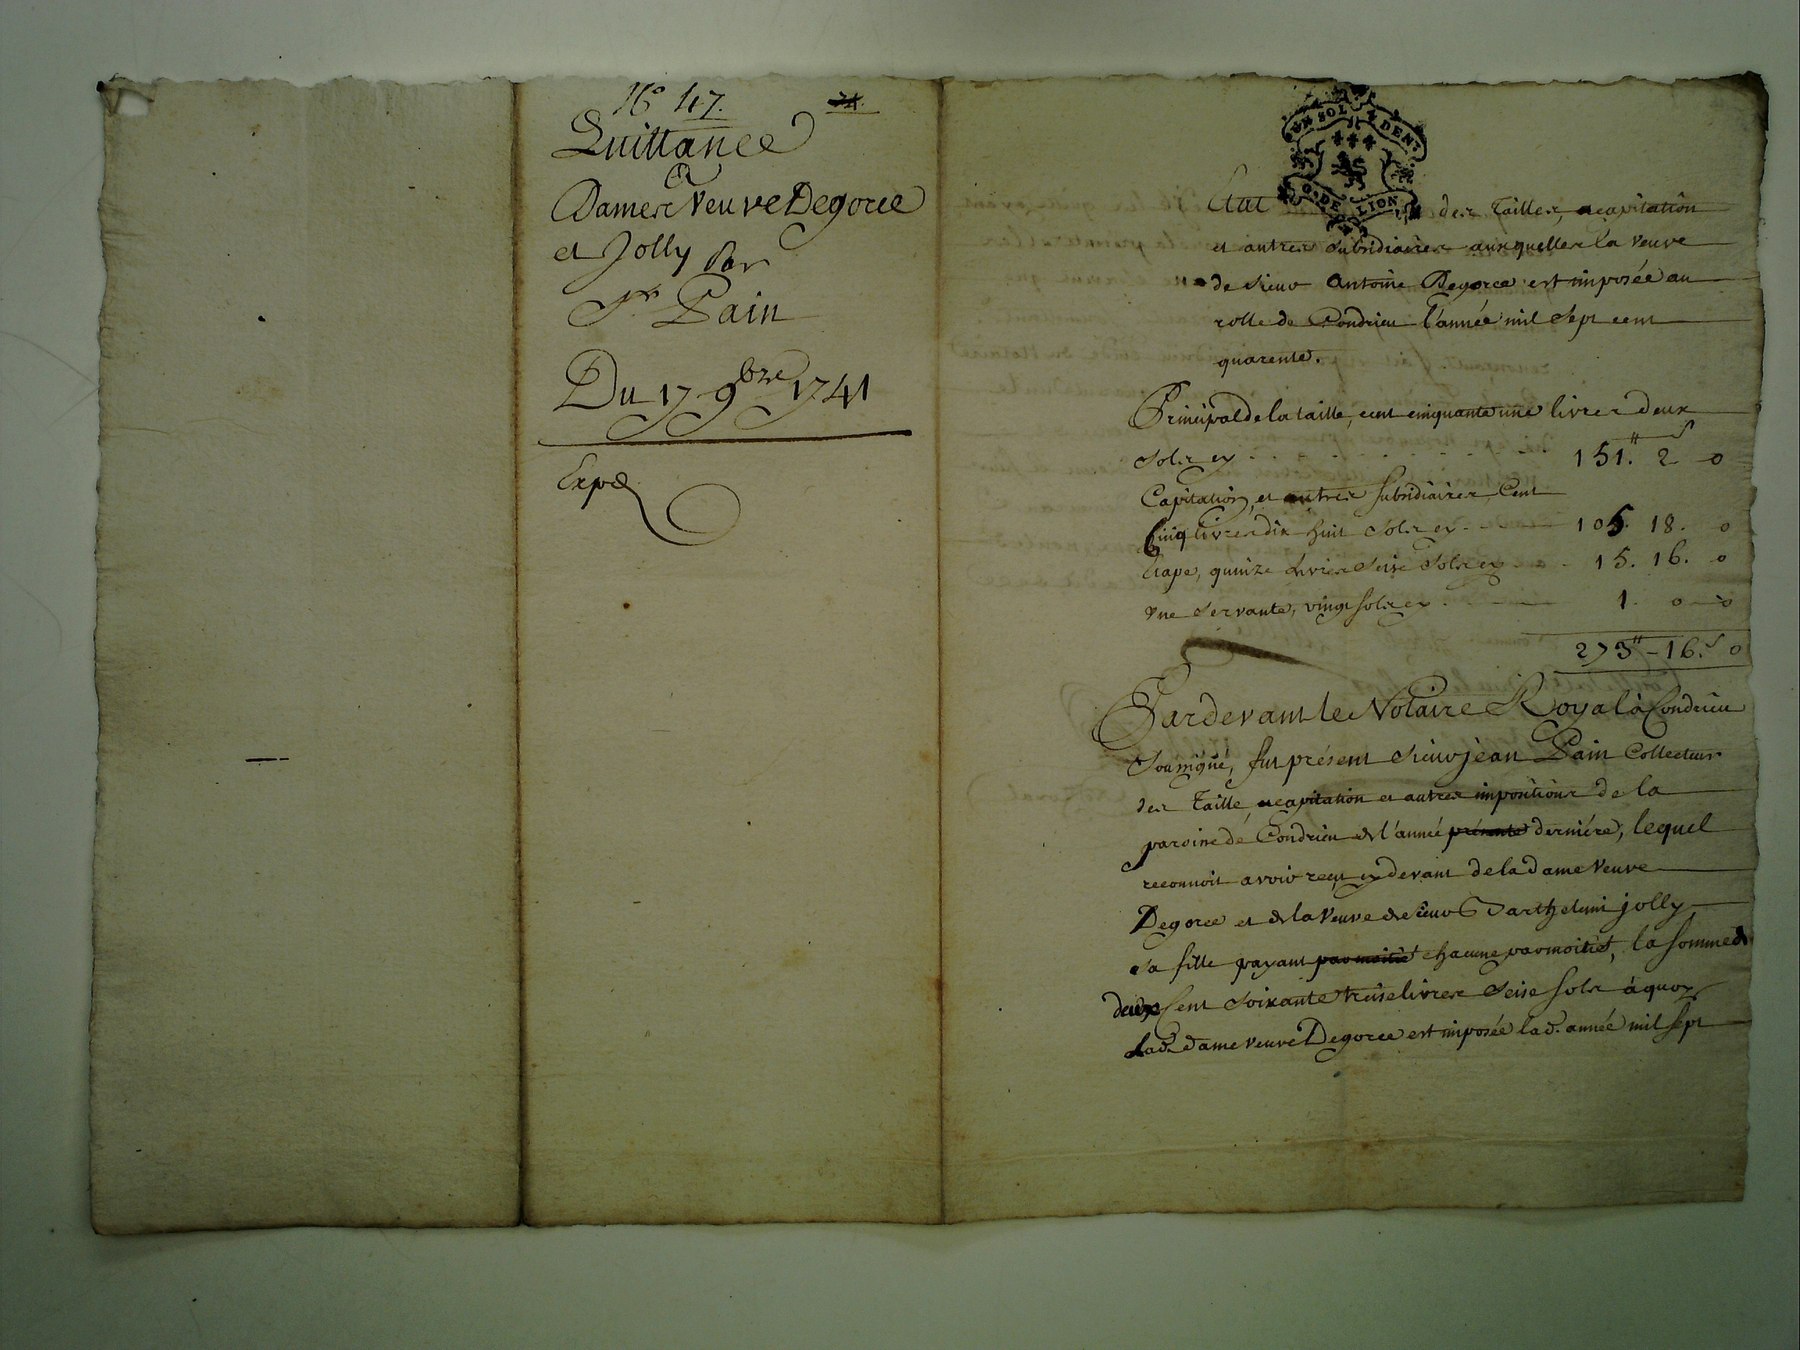 N° 47. 74.
Quittance
A
Dames Veuve Degorce
et Jolly Par
Sr. Pain
Du 17 9bre 1741
Expé
UN SOL 4 DEN.
G. DE LION
Etat des Tailles, capitation
et autres subsidiaires auxquelles la veuve
de sieur Antoine Degorce est imposée au
rolle de Condrieu l'année mil sept cent
quarente.
Principal de la taille, cent cinquante une livres deux
sols cy . . . . . . . 151.ᵗᵗ 2ˢ 0
Capitation, et autres subsidiaires, Cent
Cinq livres dix huit sols cy 105. 18. 0
Etape, quinze livres seise sols cy 15. 16. 0
une servante, vingt sols cy 1. 0 0
273ᵗᵗ - 16.ˢ 0
Pardevant le Notaire Royal à Condrieu
soussigné, fut présent sieur jean Pain Collecteur
des Taille, capitation et autres impositions de la
paroisse de Condrieu de l'année présente derniére, lequel
reconnoit avoir reçu cy devant de la dame veuve
Degorce et de la veuve de sieur Barthelemi jolly
sa fille payant par moitié chacune par moitiés, la somme de
deux Cent soixante treise livres seise sols à quoy
lad. dame veuve Degorce est imposée lad. année mil sept